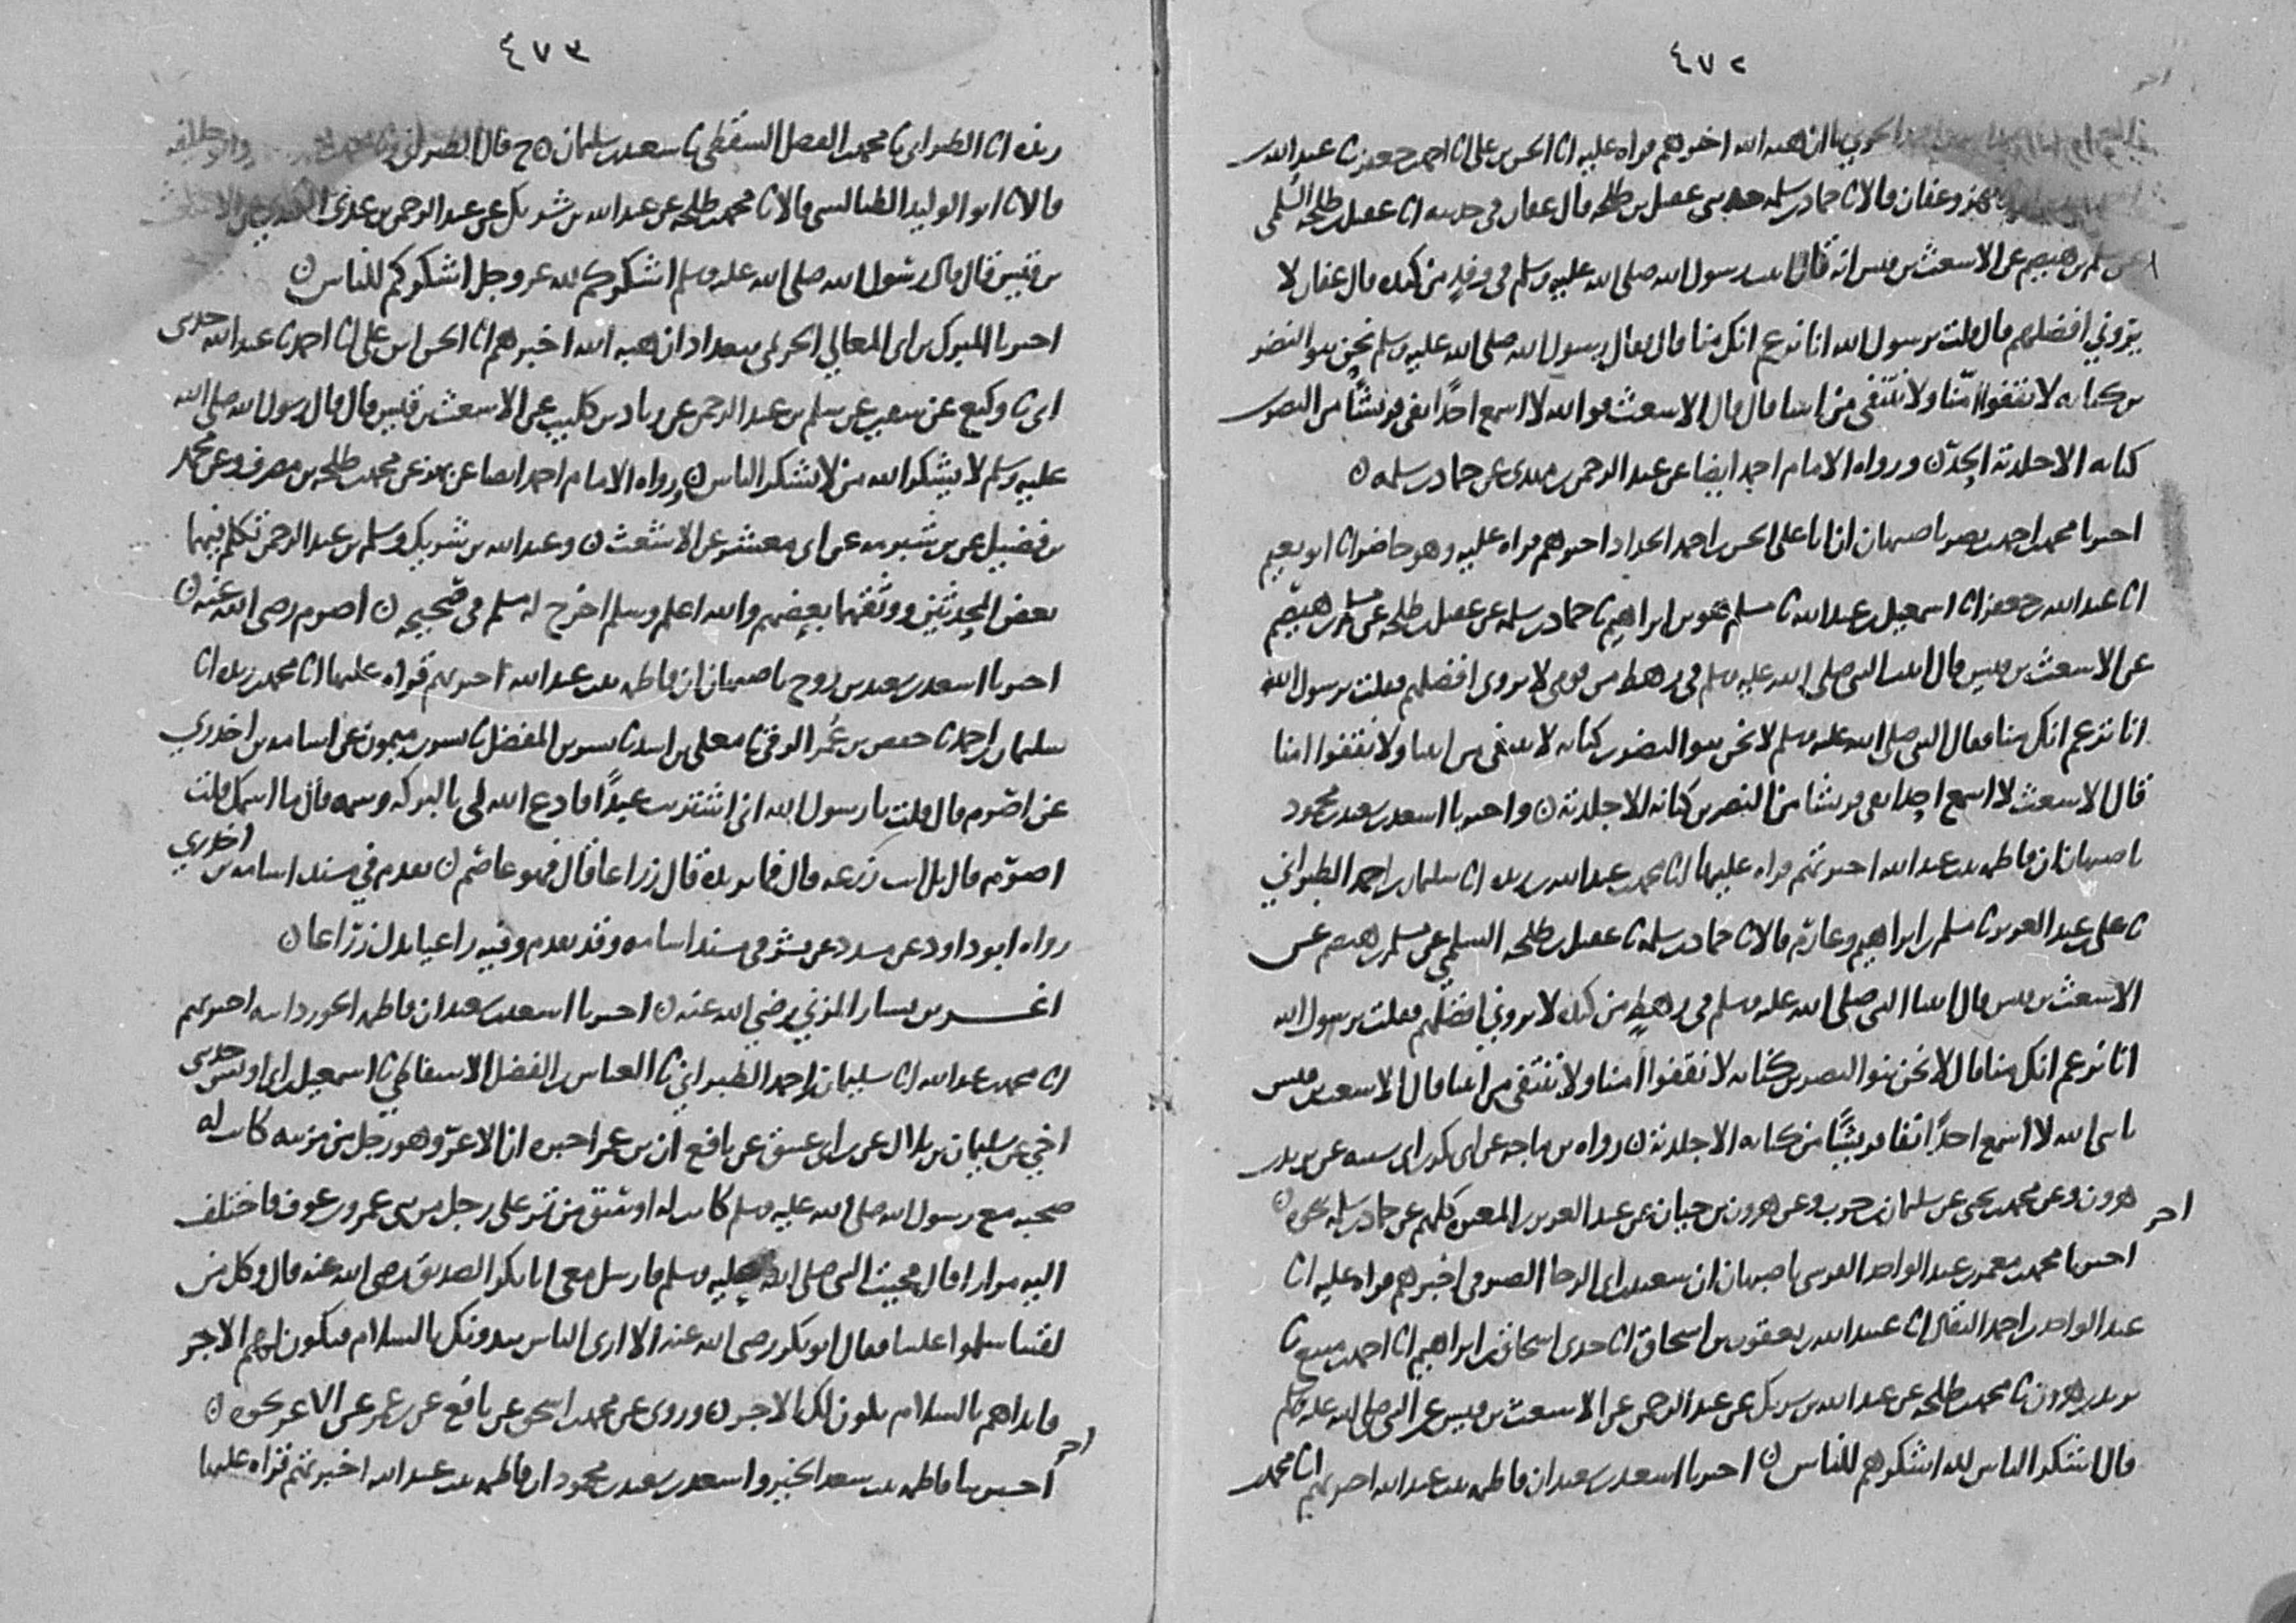 ٤٧٢
ان هبه الله اخبرهم قراه عليه انا الحسن بن علي انا احمد بن جعفر نا عبد الله بن
بهز وعفان قالا نا حماد بن سلمه حدثني عقيل بن طلحه قال عفان في حديثه انا عقيل بن طلحه السلمي
عن مسلم بن هيصم عن الاشعث بن قيس انه قال اتيت رسول الله صلى الله عليه وسلم في وفد من كنده قال عفان لا
يروني افضلهم قال قلت يرسول الله انا نزعم انكم منا قال فقال رسول الله صلى الله عليه وسلم نحن بنو النضر
بن كنانه لا نقفوا امنا ولا ننتفي من ابينا قال قال الاشعث فو الله لا اسمع احدا نفى قريشا من النضر بن
كنانه الا جلدته الحد ورواه الامام احمد ايضا عن عبد الرحمن بن مهدي عن حماد بن سلمه
اخبرنا محمد بن احمد بن نصر باصبهان ان ابا علي الحسن بن احمد الحداد اخبرهم قراه عليه وهو حاضر انا ابو نعيم
انا عبد الله بن جعفر انا اسمعيل بن عبد الله نا مسلم هو بن ابراهيم نا حماد بن سلمه عن عقيل بن طلحه عن مسلم بن هيصم
عن الاشعث بن قيس قال اتيت النبي صلى الله عليه وسلم في رهط من قومي لا يروني افضلهم فقلت يرسول الله
انا نزعم انكم منا فقال النبي صلى الله عليه وسلم لا نحن بنو النضر بن كنانه لا ننتفي من ابينا ولا نقفوا امنا
قال الاشعث لا اسمع احدا نفى قريشا من النضر بن كنانه الا جلدته واخبرنا اسعد بن سعيد بن محمود
باصبهان ان فاطمه بنت عبد الله اخبرتهم قراه عليها انا محمد بن عبد الله بن ريذه انا سليمان بن احمد الطبراني
نا علي بن عبد العزيز نا مسلم بن ابراهيم وعارم قالا نا حماد بن سلمه نا عقيل بن طلحه السلمي عن مسلم بن هيصم عن
الاشعث بن قيس قال اتينا النبي صلى الله عليه وسلم في رهط من كنده لا يروني افضلهم فقلت يرسول الله
انا نزعم انكم منا قال لا نحن بنو النضر بن كنانه لا نقفوا امنا ولا ننتفي من ابينا قال الاشعث بن قيس
لا اسمع احدا نفا قريشا من كنانه الا جلدته رواه بن ماجه عن ابي بكر بن ابي شيبه عن يزيد بن
هرون وعن محمد بن يحيى عن سلمان بن حرب وعن هرون بن حيان عن عبد العزيز بن المغيره كلهم عن حماد بن سلمه بنحوه
اخر
اخبرنا محمد بن معمر بن عبد الواحد القرشي باصبهان ان سعيد بن ابي الرجا الصيرفي اخبرهم قراه عليه انا
عبد الواحد بن احمد البقال انا عبيد الله بن يعقوب بن اسحاق انا جدي اسحاق بن ابراهيم انا احمد بن منيع نا
يزيد بن هرون نا محمد بن طلحه عن عبد الله بن شريك عن عبد الرحمن عن الاشعث بن قيس عن النبي صلى الله عليه وسلم
قال اشكر الناس لله اشكرهم للناس اخبرنا اسعد بن سعيد ان فاطمه بنت عبد الله اخبرتهم انا محمد بن
٤٧٣
ريذه انا الطبراني نا محمد بن الفضل السقطي نا سعيد بن سليمان ح قال الطبراني
قالا نا ابو الوليد الطيالسي قالا نا محمد بن طلحه عن عبد الله بن شريك عن عبد الرحمن بن عدي الكندي عن الاشعث
بن قيس قال قال رسول الله صلى الله عليه وسلم اشكركم لله عز وجل اشكركم للناس
اخبرنا المبرك بن ابي المعالي الحريمي ببغداد ان هبه الله اخبرهم انا الحسن بن علي انا احمد نا عبد الله حدثني
ابي نا وكيع عن سفين عن سلم بن عبد الرحمن عن زياد بن كليب عن الاشعث بن قيس قال قال رسول الله صلى الله
عليه وسلم لا يشكر الله من لا يشكر الناس ورواه الامام احمد ايضا عن بهز عن محمد بن طلحه بن مصرف وعن محمد
بن فضيل عن بن شبرمه عن ابي معشر عن الاشعث وعبد الله بن شريك وسلم بن عبد الرحمن تكلم فيهما
بعض المحدثين ووثقهما بعضهم والله اعلم وسلم اخرج له مسلم في صحيحه اصرم رضي الله عنه
اخبرنا اسعد بن سعيد بن روح باصبهان ان فاطمه بنت عبد الله اخبرتهم قراه عليها انا محمد بن ريذه انا
سليمان بن احمد نا حفص بن عمر الرقي نا معلى بن اسد نا بشر بن المفضل نا بشير بن ميمون عن اسامه بن اخدري
عن اصرم قال قلت يا رسول الله اني اشتريت عبدا فادع الله لي بالبركه وسمه قال ما اسمك قلت
اصرم قال بل انت زرعه قال فما تريده قال زراعا قال فهو عاصم تقدم في مسند اسامه بن اخدري
رواه ابو داود عن مسدد عن بشر في مسند اسامه وقد تقدم وفيه راعيا بدل زراعا
اغر بن يسار المزني رضي الله عنه اخبرنا اسعد بن سعيد ان فاطمه الجوزدانيه اخبرتهم
انا محمد بن عبد الله انا سليمان بن احمد الطبراني نا العباس بن الفضل الاسفاطي نا اسمعيل بن ابي اويس حدثني
اخي عن سليمان بن بلال عن بن ابي عتيق عن نافع ان بن عمر اخبره ان الاغر وهو رجل من مزينه كانت له
صحبه مع رسول الله صلى الله عليه وسلم كانت له اوسق من تمر على رجل من بني عمرو بن عوف فاختلف
اليه مرارا قال فجيت النبي صلى الله عليه وسلم فارسل معي ابا بكر الصديق رضي الله عنه قال وكل من
لقينا سلموا علينا فقال ابو بكر رضي الله عنه الا ارى الناس يبدونك بالسلام فيكون لهم الاجر
فابداهم بالسلام يكون لك الاجر وروي عن محمد بن اسحق عن نافع عن بن عمر عن الاغر بنحوه
اخر
اخبرتنا فاطمه بنت سعد الخير واسعد بن سعيد بن محمود ان فاطمه بنت عبد الله اخبرتهم قراه عليها